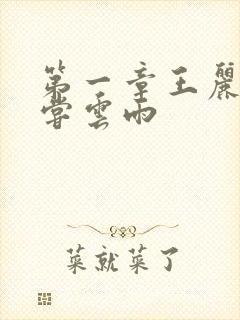 第一章王麗
嘗雲雨
菜就菜了